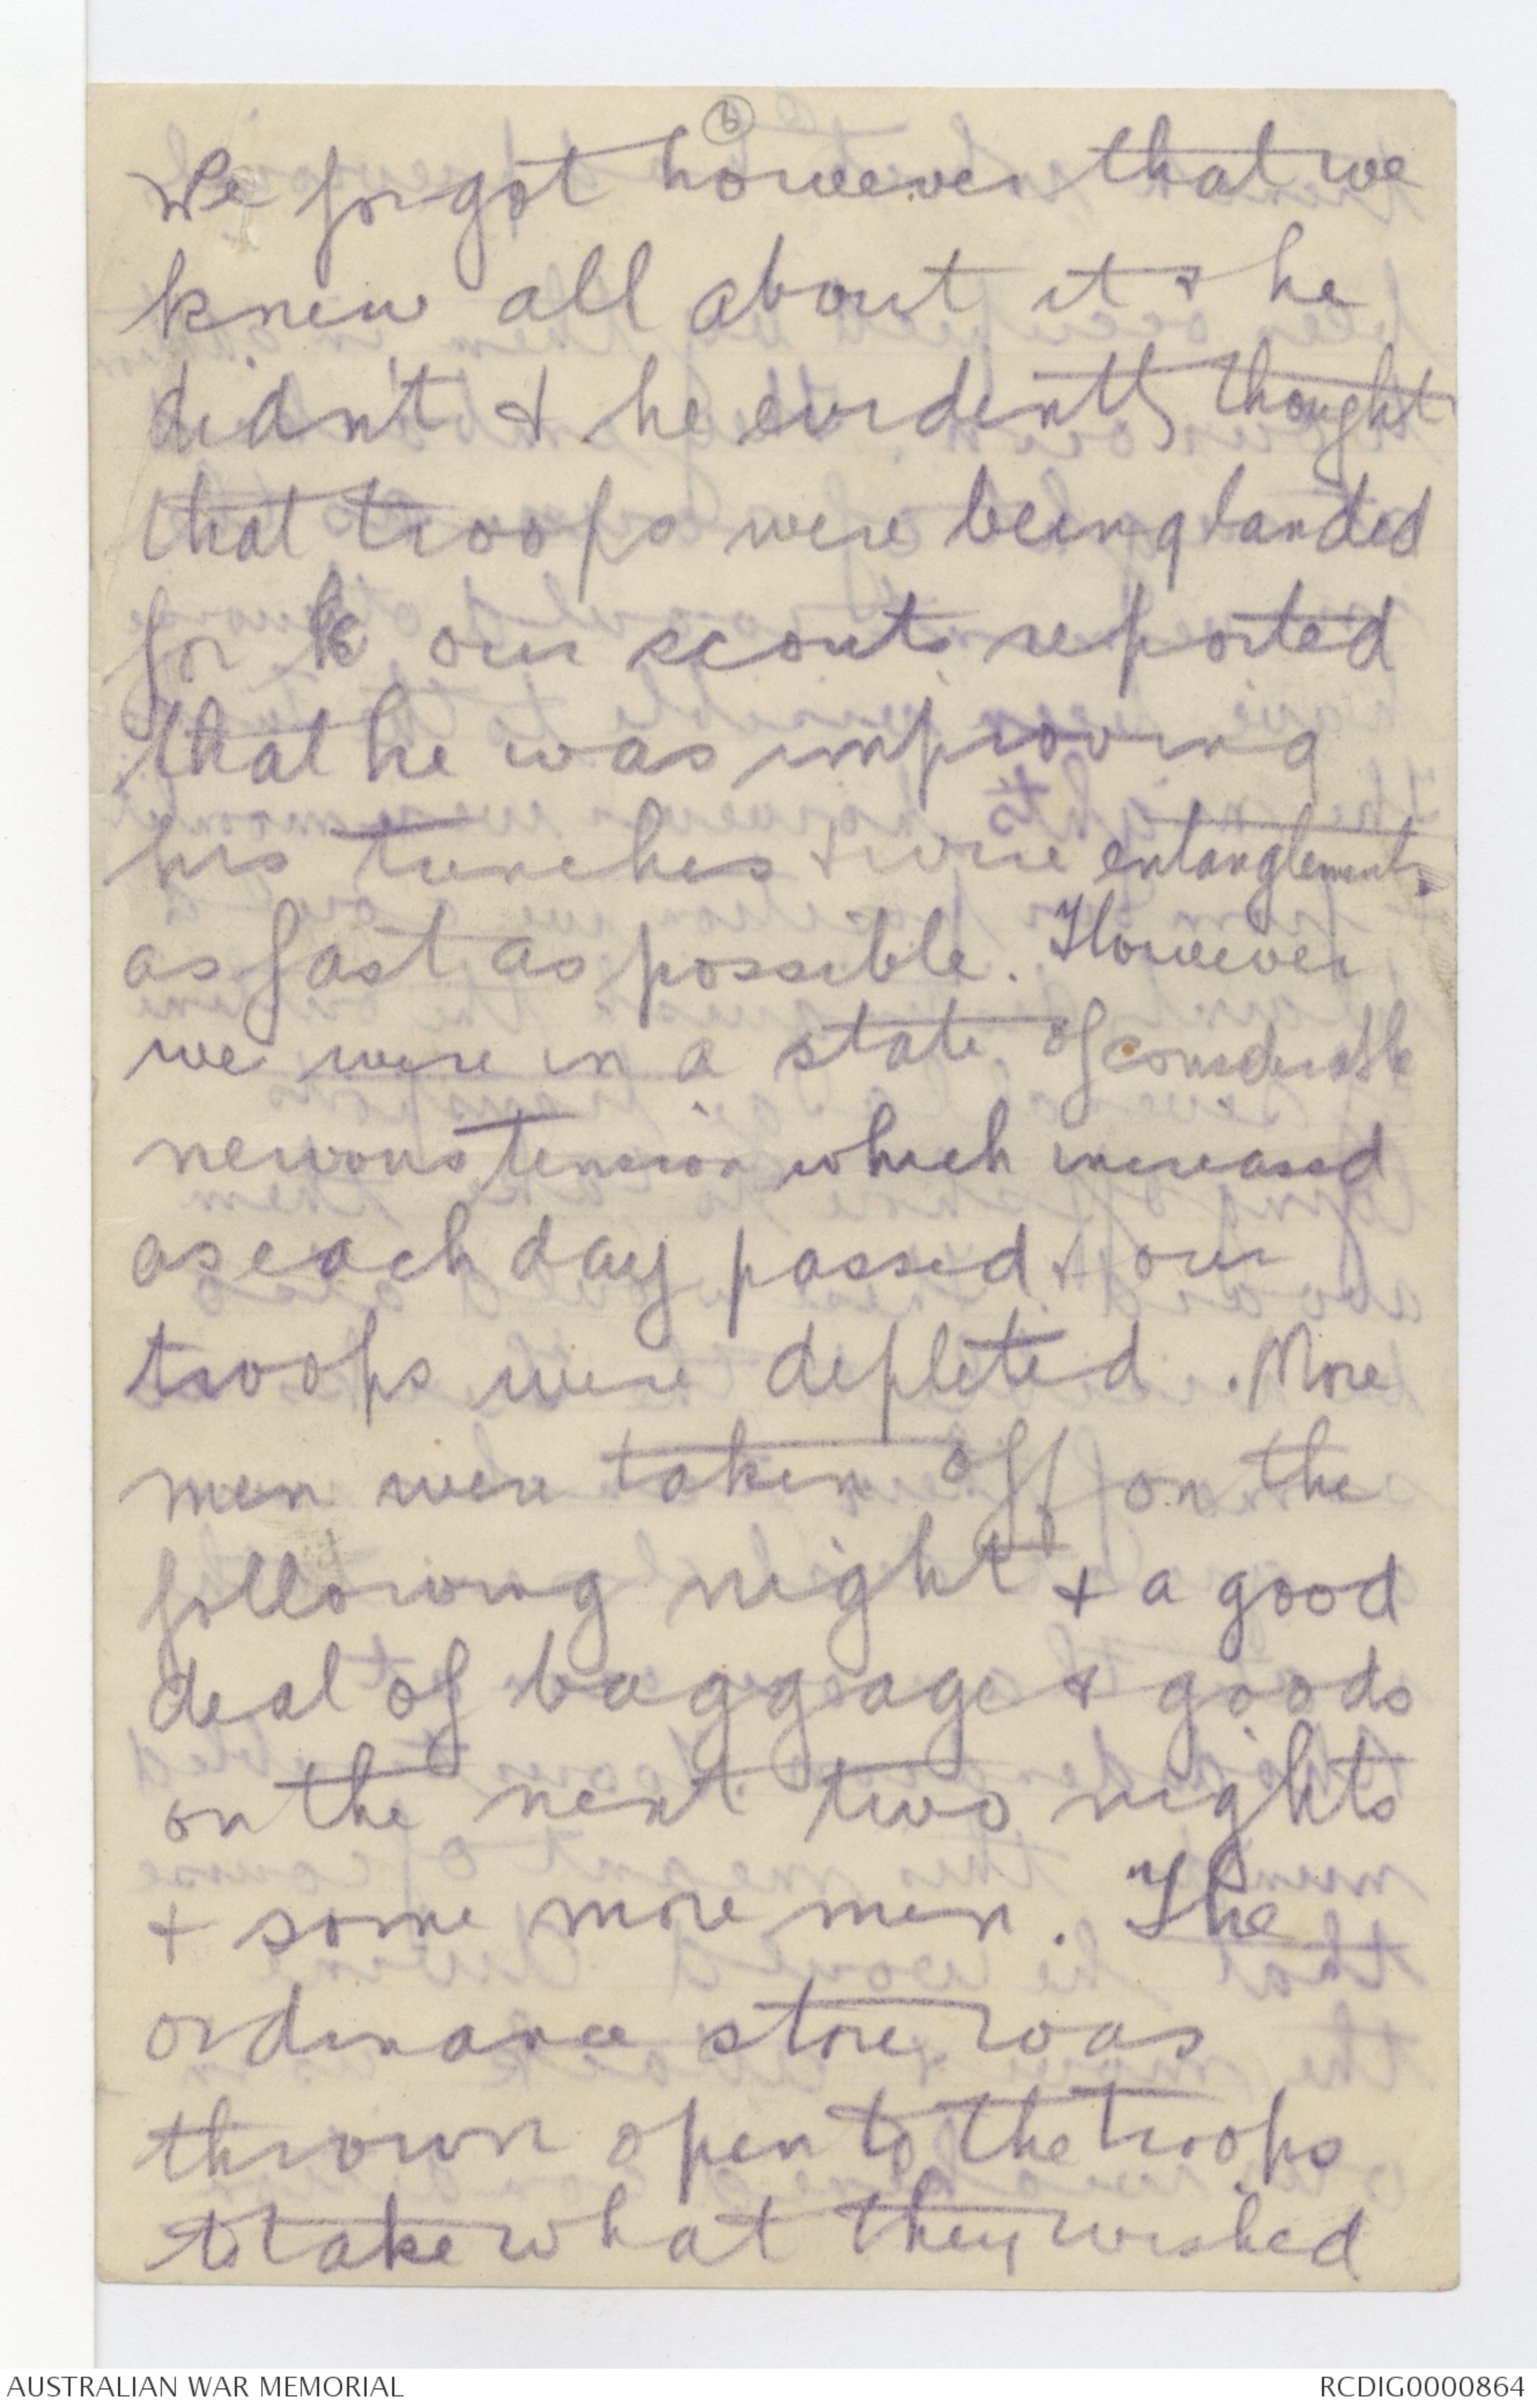 6
We forgot however that we
knew all about it & he
didn't & he evidently thought
that troops were being landed
for our scouts reported
that he was improving
his trenches & wire entanglements
as fast as possible. However
we were in a state of considerable
nervous tension which increased
as each day passed & our
troops were depleted. More
men were taken off on the
following night & a good
deal of baggage & goods
on the next two nights
& some more men. The
ordinance store was
thrown open to the troops
to take what they wished
AUSTRALIAN WAR MEMORIAL
RCDIG0000864